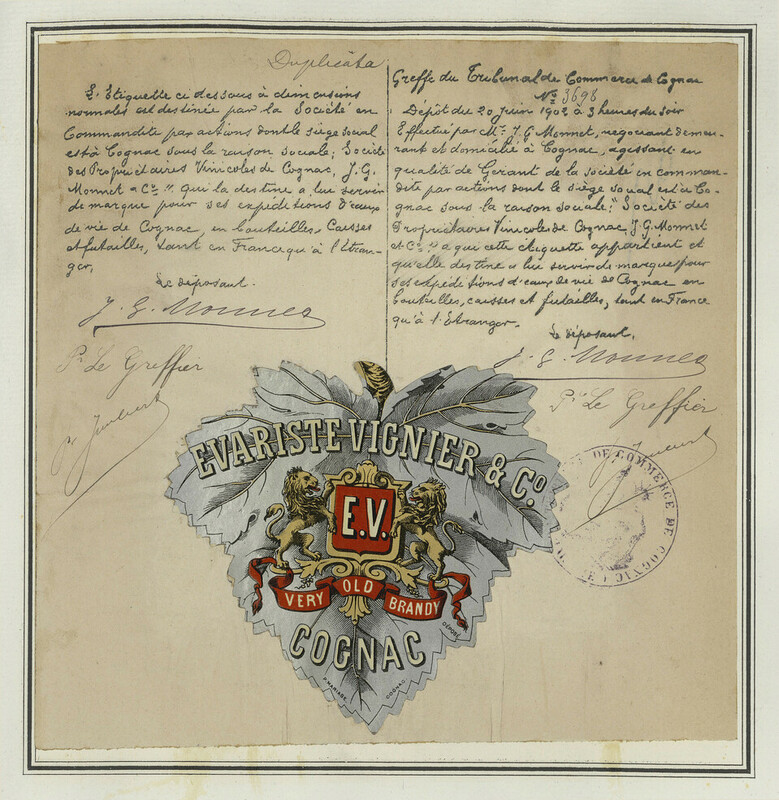 Duplicata
L'Etiquette ci dessous à dimensions
normales est destinée par la Société en
Commandite par actions dont le siège social
est à Cognac sous la raison sociale; Société
des Propriétaires Vinicoles de Cognac, J. G.
Monnet & Cie ". qui la destine a lui servir
de marque pour ses expéditions d'eaux
de vie de Cognac, en bouteilles, Caisses
et futailles, tant en France qu'à l'étran-
ger,
Le déposant.
J. G. Monnet
Pr Le Greffier
Greffe du Tribunal de Commerce de Cognac
No 3698
Dépôt du 20 Juin 1902 à 3 heures du soir
Effectué par Mr. J. G. Monnet, négociant demeu-
rant et domicilié à Cognac, agissant en
qualité de Gérant de la société en comman-
dite par actions dont le siège social est à Co-
gnac sous la raison sociale; "Société des
Propriétaires Vinicoles de Cognac J. G. Monnet
et Cie " a qui cette étiquette appartient et
qu'elle destine a lui servir de marque pour
ses expéditions d'eaux de vie de Cognac en
bouteilles, caisses et futailles, tant en France
qu'à l'Etranger.
Le déposant,
J. G. Monnet
Pr Le Greffier
EVARISTE VIGNIER & Co
E.V.
VERY OLD BRANDY
COGNAC
DÉPOSÉ
P. MARIAGE COGNAC
DE COMMERCE DE COGNAC